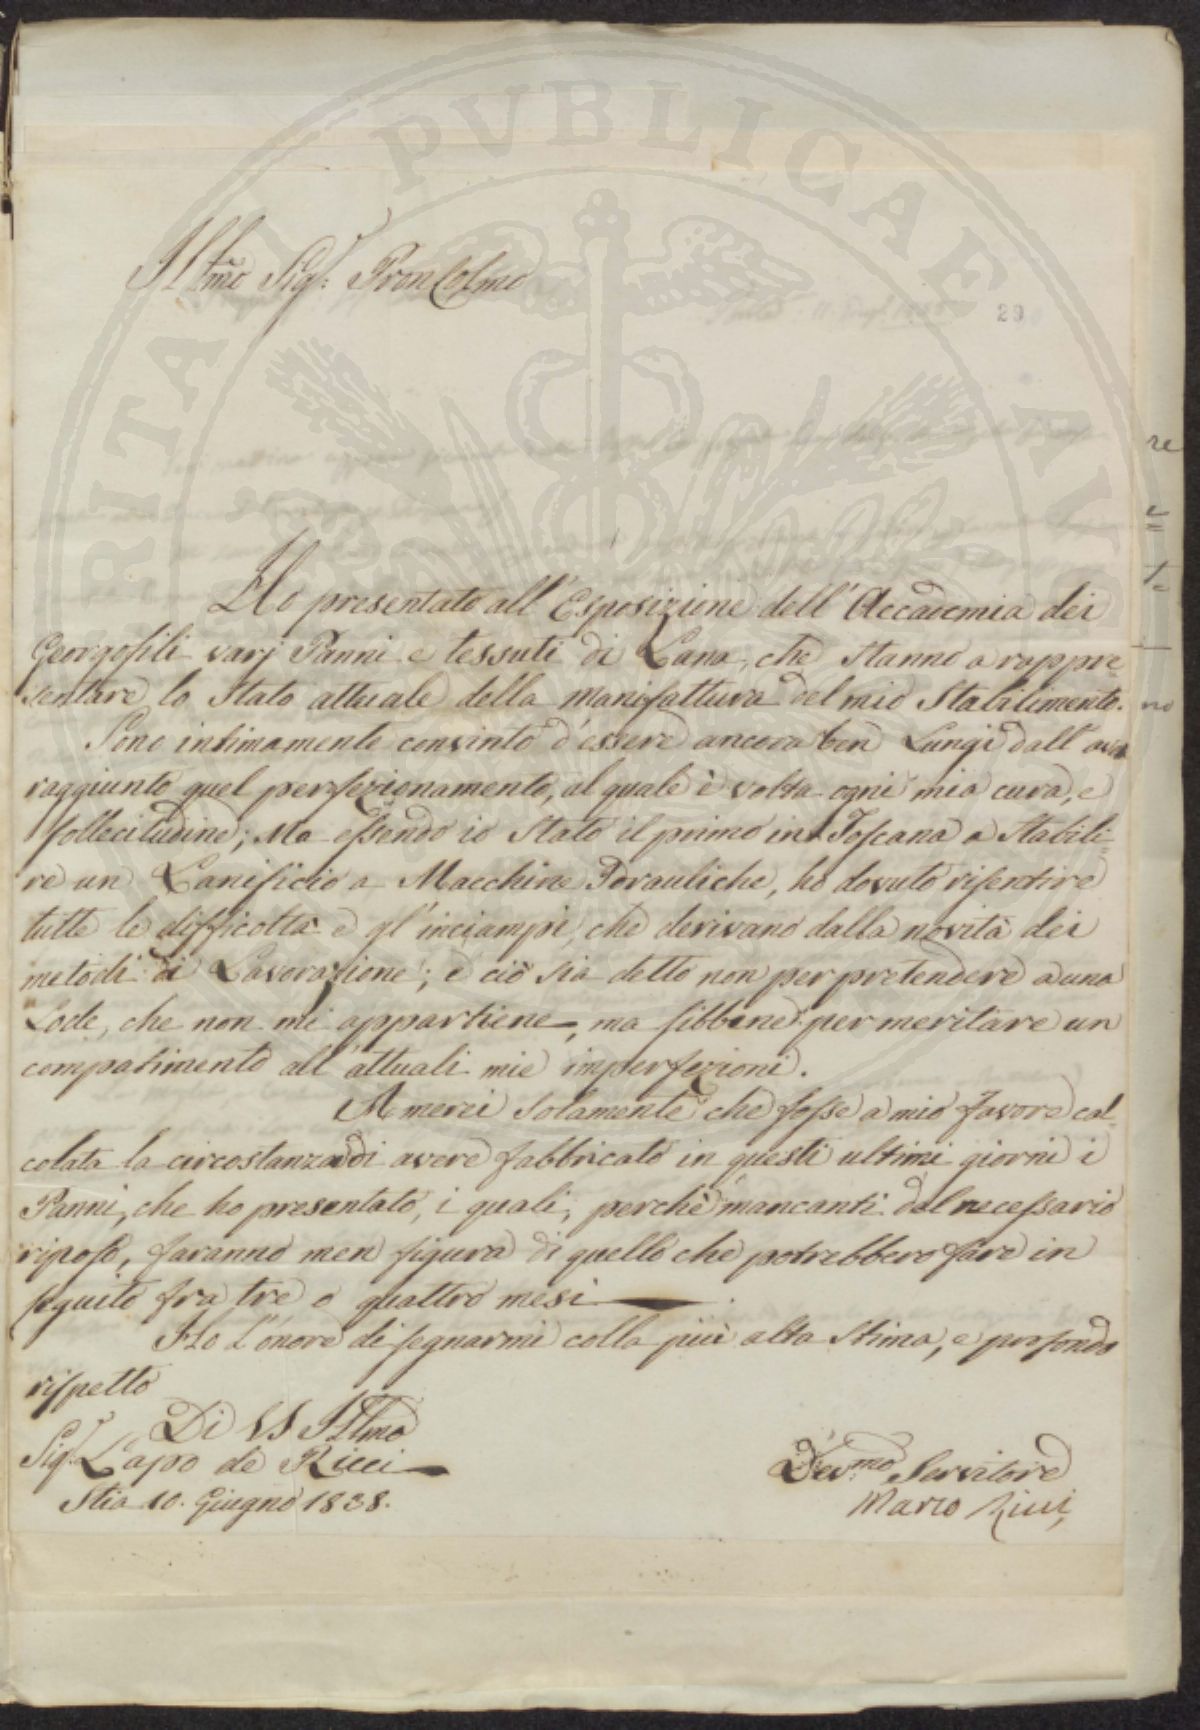 PUBLICAE
Ill.mo Sig.r Pron Colmo
29
Ho presentato all'Esposizione dell'Accademia dei
Georgofili varj Panni e tessuti di Lana, che stanno a rappre=
sentare lo stato attuale della manifattura del mio Stabilimento.
Sono intimamente convinto d'essere ancora ben Lungi dall'aver
raggiunto quel perfezionamento, al quale è volta ogni mia cura, e
sollecitudine; Ma essendo io stato il primo in Toscana a stabili=
re un Lanificio a Macchine Idrauliche, ho dovuto risentire
tutte le difficoltà e gl'inciampi, che derivano dalla novità dei
metodi di Lavorazione; e ciò sia detto non per pretendere a una
Lode, che non mi appartiene, ma sibbene per meritare un
compatimento all'attuali mie imperfezioni.
Amerei solamente che fosse a mio favore cal=
colata la circostanza di avere fabbricato in questi ultimi giorni i
Panni, che ho presentato, i quali, perchè mancanti del necessario
riposo, faranno men figura di quello che potrebbero fare in
seguito fra tre o quattro mesi.
Ho l'onore di segnarmi colla più alta stima, e profondo
rispetto
Di VS Ill.mo
Sig.r Lapo de Ricci
Stia 10. Giugno 1838.
Dev.mo Servitore
Marco Ricci